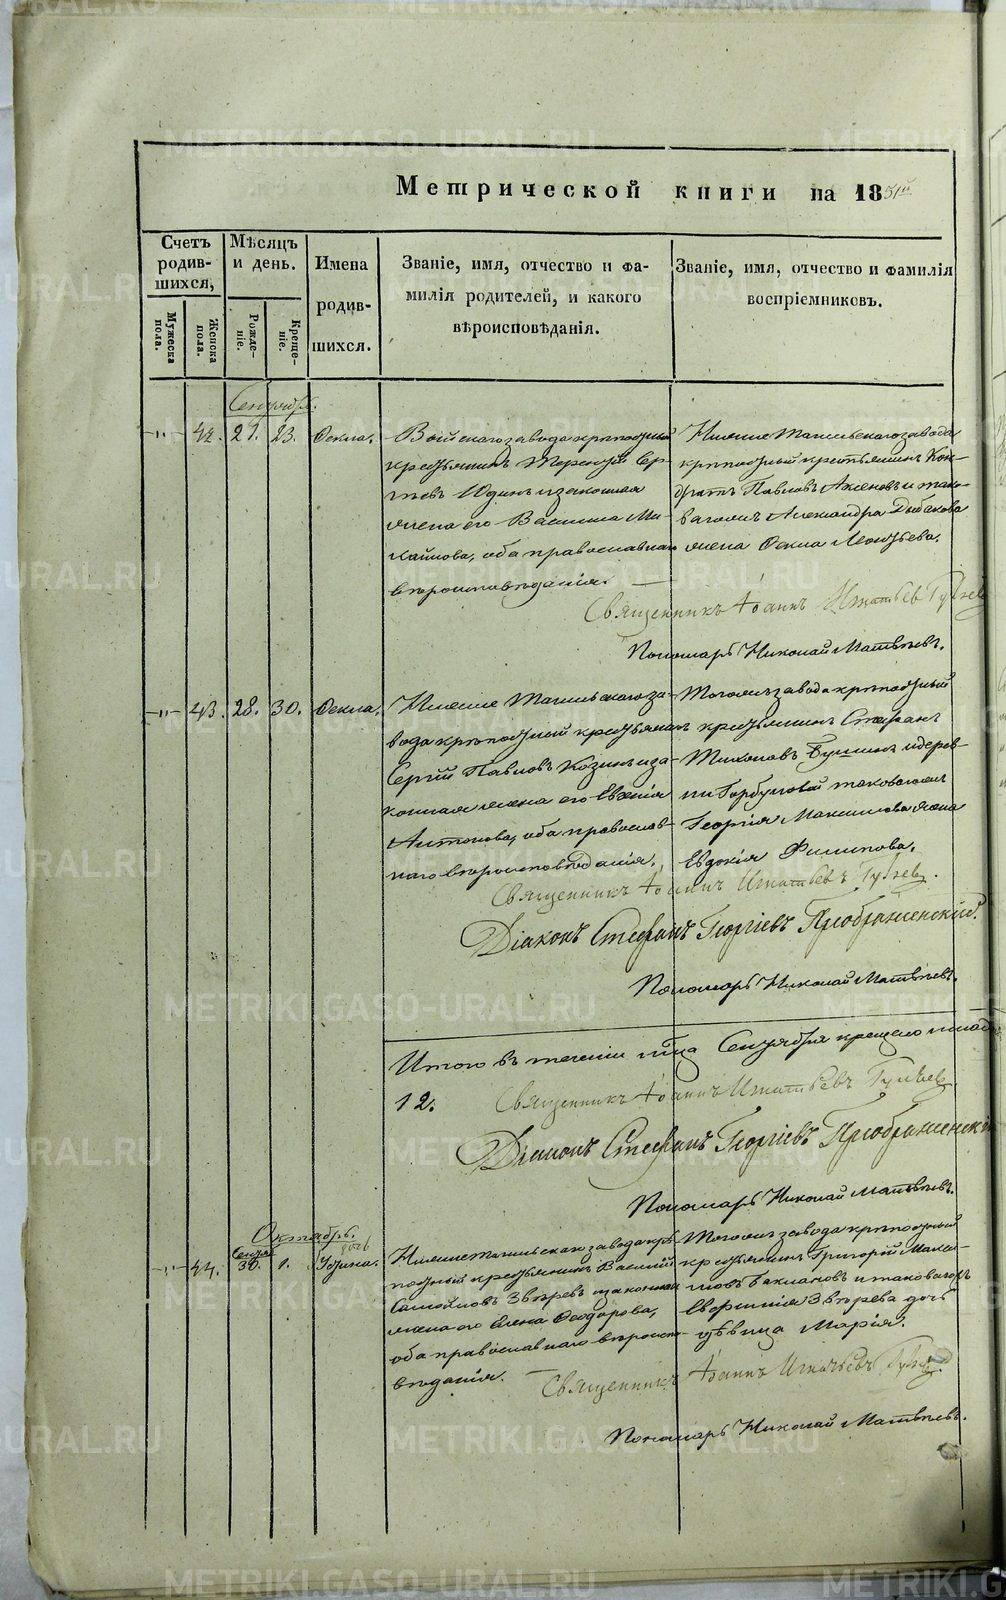 Метрической книги на 1851й
Счетъ родив-шихся,
Мѣсяцъ и день.
Имена родив-шихся.
Званіе, имя, отчество и фа-
милія родителей, и какого
вѣроисповѣданія.
Званіе, имя, отчество и фамилія
воспріемниковъ.
Мужеска пола.
Женска пола.
Рожде-ніе.
Креще-ніе.
Сентябрь.
42. 21. 23. Фекла.
завода крѣпостный
крестьянинъ Терентій Сер-
гѣевъ Юдинъ и законная
жена его Василиса Ми-
хайлова, оба православнаго
вѣроисповѣданія.
Нижне Тагильскаго завода
крѣпостный крестьянинъ Кон-
дратъ Павловъ Аксеновъ и тако-
ваго жъ Александра
жена Фекла Леонтьева.
Священникъ Іоаннъ Игнатьевъ
Пономарь Николай Матвѣевъ.
43. 28. 30. Фекла.
Нижне Тагильскаго за-
вода крѣпостный крестьянинъ
Сергій Павловъ Козинъ и за-
конная жена его Евгенія
Антонова, оба православ-
наго вѣроисповѣданія.
Тогожъ завода крѣпостный
крестьянинъ Стефанъ
Тихоновъ и дерев-
ни Горбуновой таковагожъ
Георгія Максимова жена
Евдокія Филипова.
Священникъ Іоаннъ Игнатьевъ
Діаконъ Стефанъ Георгіевъ Преображенскій.
Пономарь Николай Матвѣевъ.
Итого въ теченіи м-ца Сентября крещено
12.
Священникъ Іоаннъ Игнатьевъ
Діаконъ Стефанъ Георгіевъ Преображенскій
Пономарь Николай Матвѣевъ.
Октябрь.
44. Сентяб. 30. 1. Устина.
Нижне Тагильскаго завода крѣ-
постный крестьянинъ Василій
Самойловъ Звѣревъ и законная
жена его Елена Феодорова,
оба православнаго вѣроиспо-
вѣданія.
Тогожъ завода крѣпостный
крестьянинъ Григорій Макси-
мовъ Баклановъ и таковагожъ
Звѣрева дочь
дѣвица Марія.
Священникъ Іоаннъ Игнатьевъ
Пономарь Николай Матвѣевъ.
METRIKI.GASO-URAL.RU